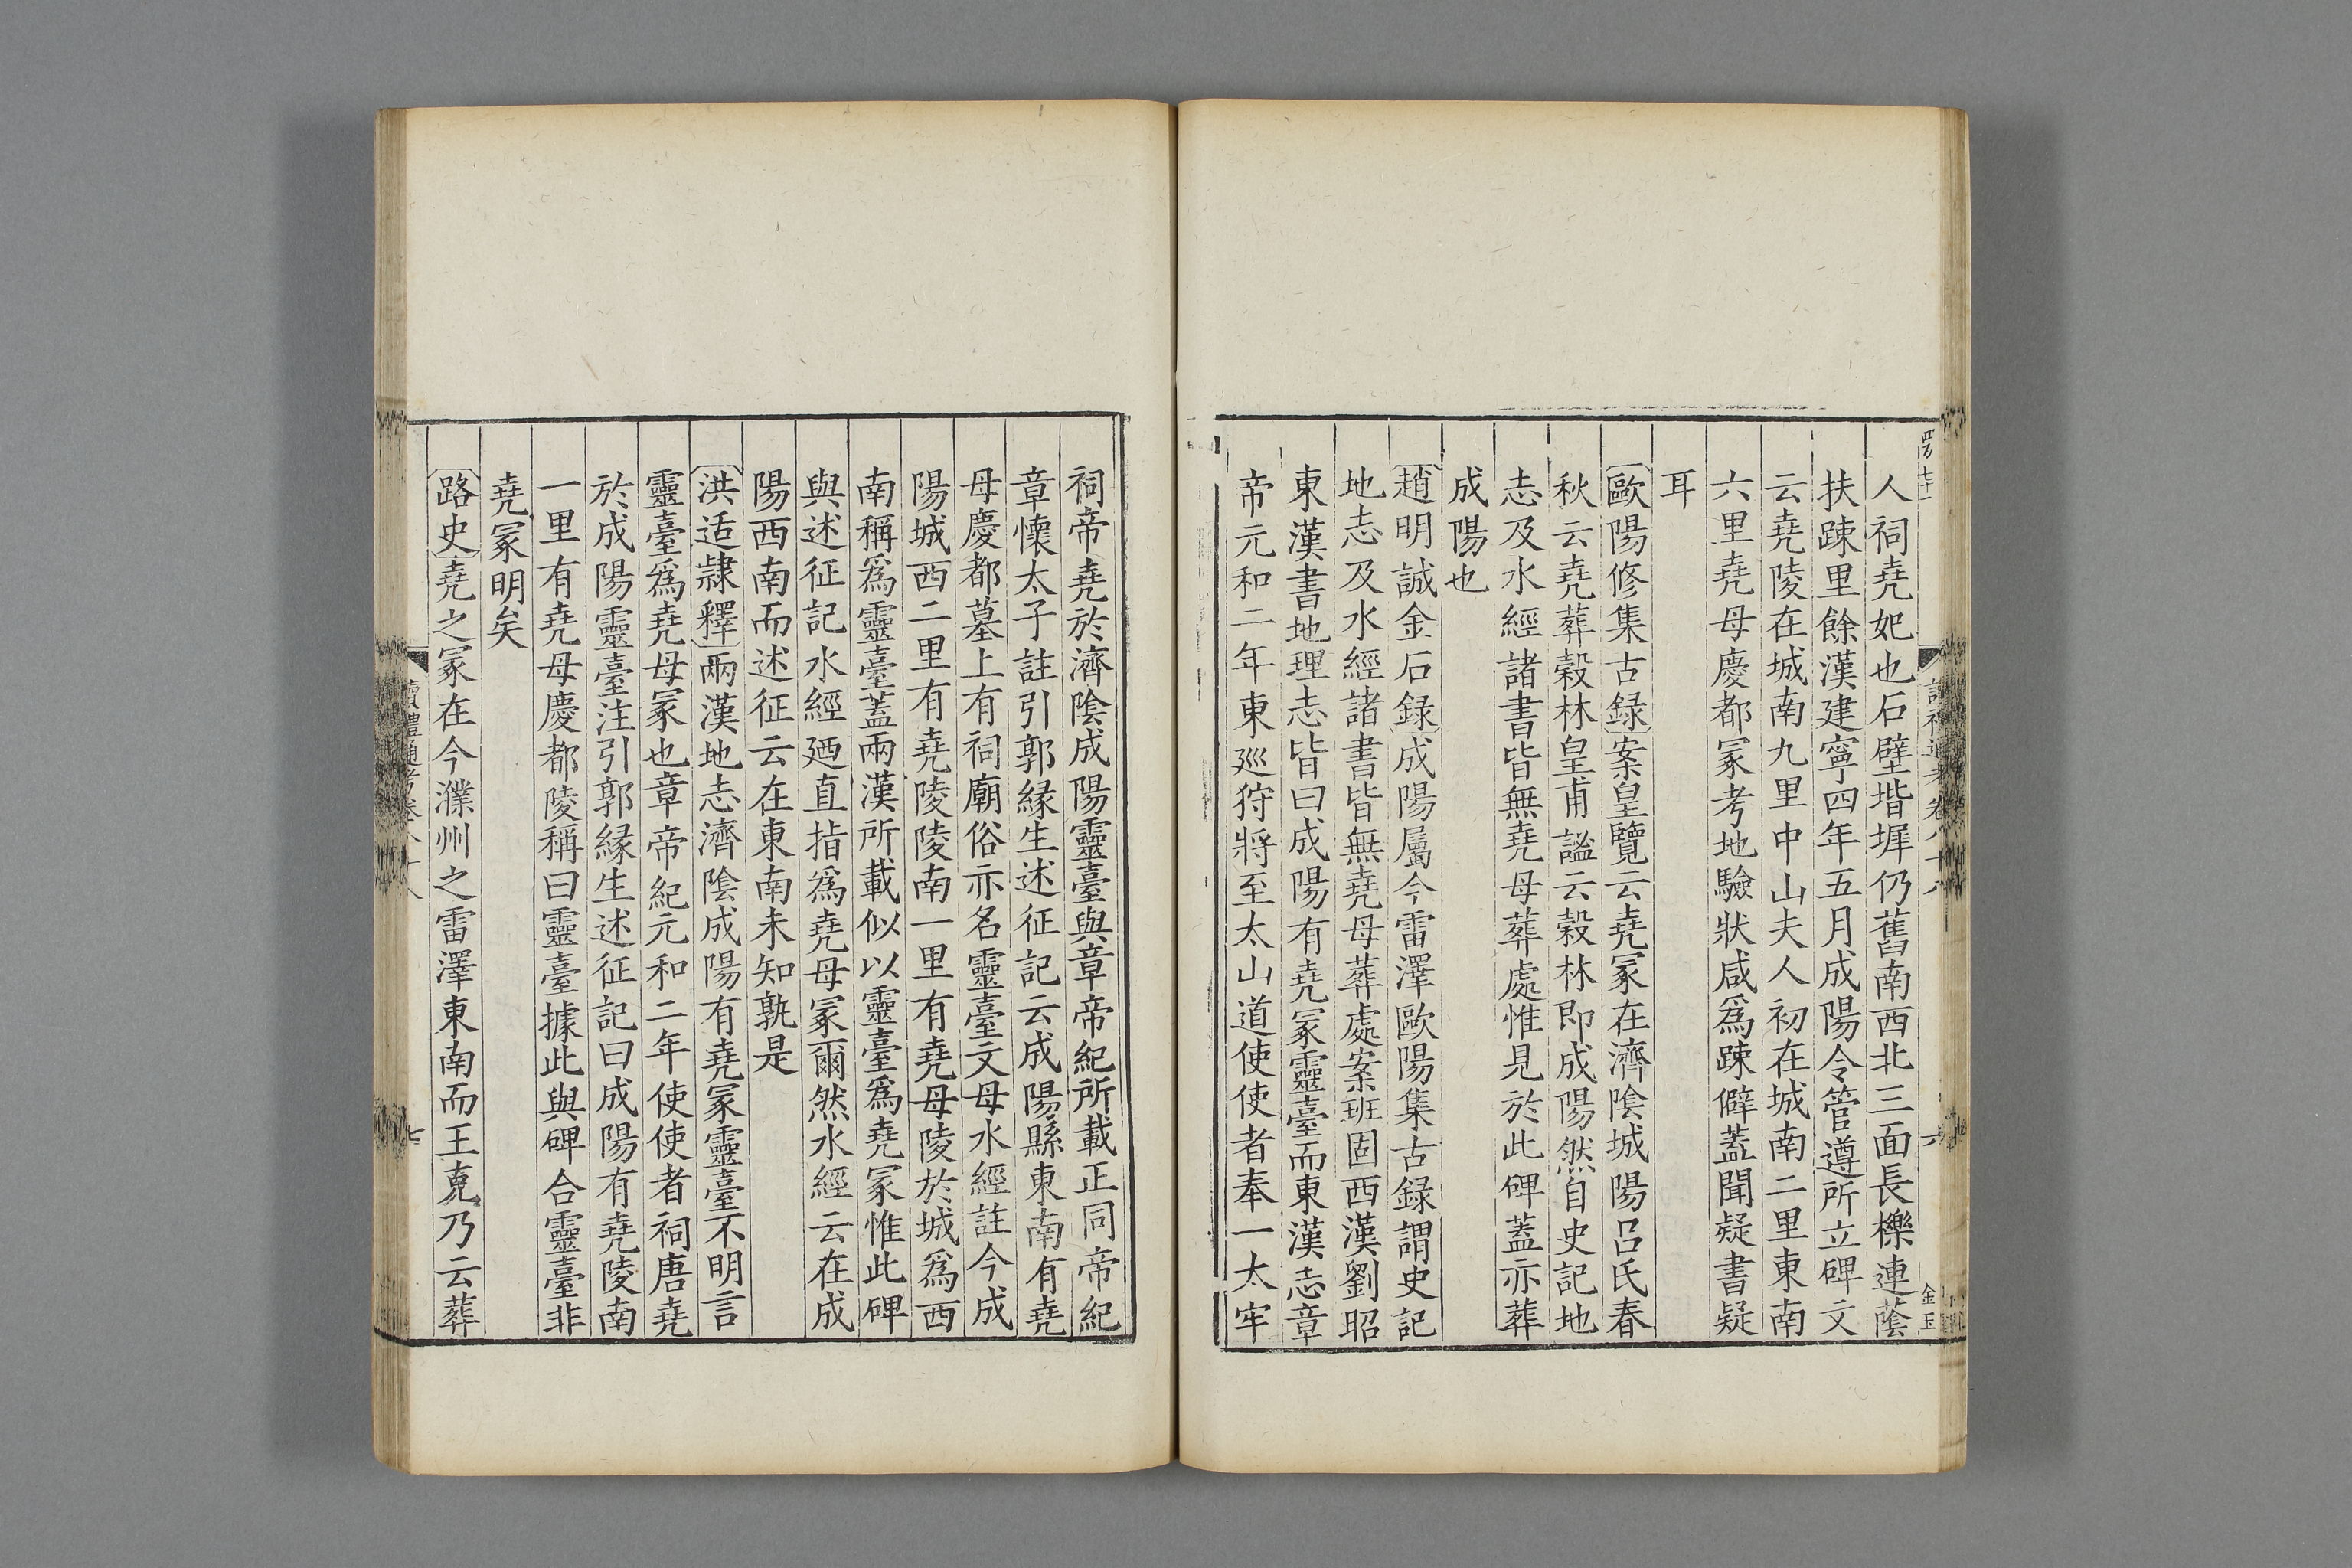 人祠堯妃也石壁堦墀仍舊南西北三面長櫟連蔭
扶踈里餘漢建寧四年五月成陽令管遵所立碑文
云堯陵在城南九里中山夫人初在城南二里東南
六里堯母慶都冢考地驗狀咸爲踈僻蓋聞疑書疑
耳
歐陽修集古録案皇覽云堯冢在濟隂城陽呂氏春
秋云堯葬榖林皇甫謐云榖林即成陽然自史記地
志及水經諸書皆無堯母葬處惟見於此碑蓋亦葬
成陽也
趙明誠金石録成陽屬今雷澤歐陽集古録謂史記
地志及水經諸書皆無堯母葬處案班固西漢劉昭
東漢書地理志皆曰成陽有堯冢靈臺而東漢志章
帝元和二年東廵狩將至太山道使使者奉一太牢
祠帝堯於濟隂成陽靈臺與章帝紀所載正同帝紀
章懷太子註引郭緣生述征記云成陽縣東南有堯
母慶都墓上有祠廟俗亦名靈臺文母水經註今成
陽城西二里有堯陵陵南一里有堯母陵於城爲西
南稱爲靈臺蓋兩漢所載似以靈臺爲堯冢惟此碑
與述征記水經廼直指爲堯母冢爾然水經云在成
陽西南而述征云在東南未知孰是
洪适隷釋兩漢地志濟隂成陽有堯冢靈臺不明言
靈臺爲堯母冢也章帝紀元和二年使使者祠唐堯
於成陽靈臺注引郭緣生述征記曰成陽有堯陵南
一里有堯母慶都陵稱曰靈臺據此與碑合靈臺非
堯冢明矣
路史堯之冢在今濮州之雷澤東南而王充乃云葬
讀禮通考卷八十八
七